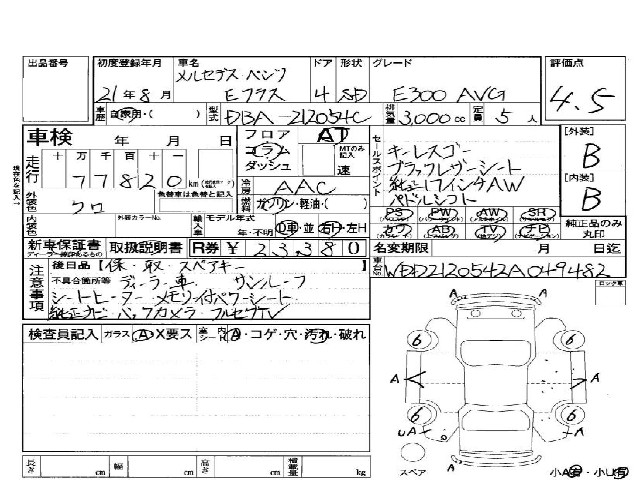 出品番号 初度登録年月 車名 ドア 形状 グレード 評価点
メルセデス・ベンツ
21年8月 Eクラス 4 SD E300 AVG 4.5
車歴 自家用・( ) 型式 DBA-212054C 排気量 3,000cc 定員 5人
車検 年 月 日 フロア AT
コラム MTのみ記入
ダッシュ 速
走行 十 万 千 百 十 一
77820km
冷房 AAC
外装色 クロ 色替車は色を記入 燃料 ガソリン・軽油・( )
内装色 外装カラーNo. 輸入車 モデル年式 年・不明 D車・並 右H・左H
新車保証書 取扱説明書 R券 ¥ 23380
ディーラー様印あるもの
セールスポイント
キーレスゴー
ブラックレザーシート
純正17インチAW
パドルシフト
PS PW AW SR
カワ AB TV ナビ
[外装]
B
[内装]
B
純正品のみ丸印
名変期限 月 日迄
車台No. WDD2120542A049482
注意事項 後日品【保、取、スペアキー 】
不具合箇所等 ディーラー車 サンルーフ
シートヒーター メモリー付パワーシート
純正ナビ・バックカメラ・フルセグTV
ロック車
検査員記入 ガラス A・X要ス 室内 A・コゲ・穴・汚れ・破れ
6 6
A A A
6 6
A
A
UA A
スペア
小A有・小U有
長さ cm 幅 cm 高さ cm 積載量 kg